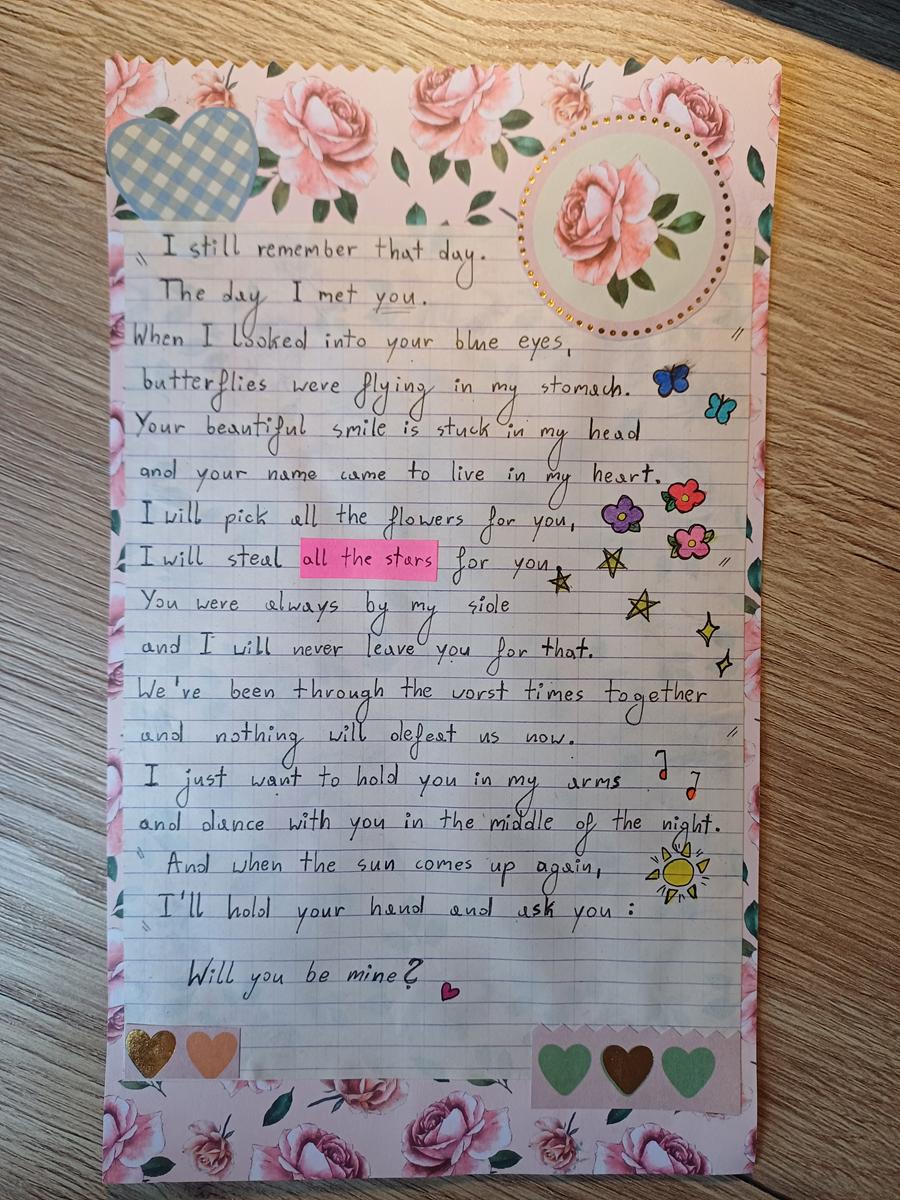 I still remember that day.
The day I met you.
When I looked into your blue eyes,
butterflies were flying in my stomach.
Your beautiful smile is stuck in my head
and your name came to live in my heart.
I will pick all the flowers for you,
I will steal all the stars for you.
You were always by my side
and I will never leave you for that.
We've been through the worst times together
and nothing will defeat us now.
I just want to hold you in my arms
and dance with you in the middle of the night.
And when the sun comes up again,
I'll hold your hand and ask you:
Will you be mine?